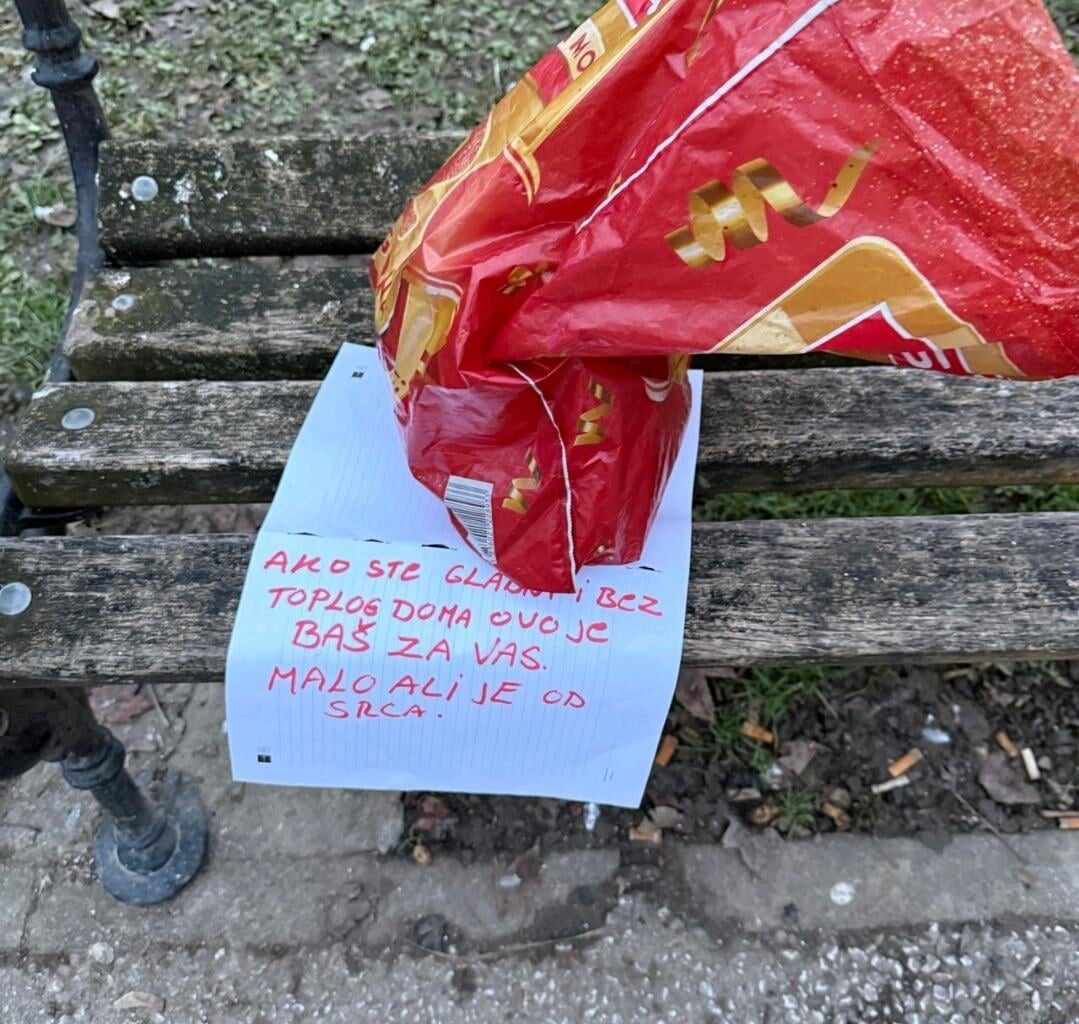 AKO STE GLADNI i BEZ
TOPLOG DOMA OVO JE
BAŠ ZA VAS.
MALO ALi JE OD
SRCA.